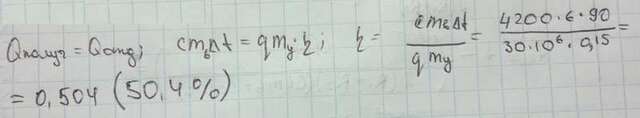 Qполуч = Qотд; cmвΔt = qmу·η; η = cmвΔt / qmу = 4200·6·90 / 30·10⁶·0,15 =
= 0,504 (50,4%)